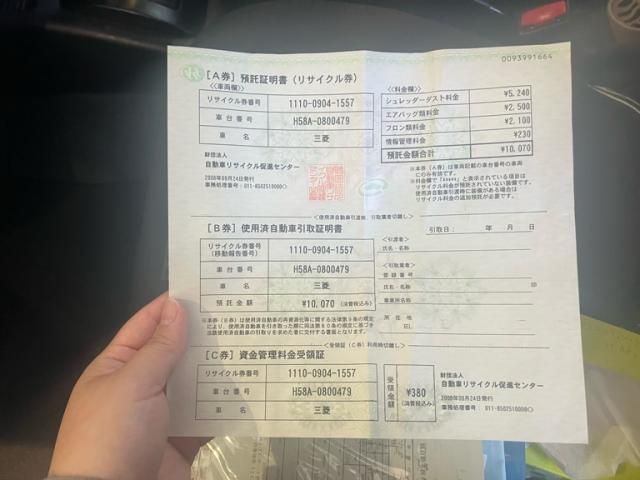 0093991664
[A券] 預託証明書(リサイクル券)
<<車両欄>>
リサイクル券番号 1110-0904-1557
車台番号 H58A-0800479
車名 三菱
<<料金欄>>
シュレッダーダスト料金 ¥5,240
エアバッグ類料金 ¥2,500
フロン類料金 ¥2,100
情報管理料金 ¥230
預託金額合計 ¥10,070
財団法人
自動車リサイクル促進センター
2008年09月24日発行
業務処理番号:011-8502510000○
※本券(A券)は車両記載の車台番号の車両にのみ有効です。
リサイクル料金が預託されていない装備です。
使用済自動車引渡時に装備がある場合は
リサイクル料金の追加預託が必要です。
<使用済自動車引渡時、引取業者切離し>
[B券] 使用済自動車引取証明書
引取日: 年 月 日
リサイクル券番号
(移動報告番号) 1110-0904-1557
車台番号 H58A-0800479
車名 三菱
預託金額 ¥10,070 (消費税込み)
<引渡者>
氏名・名称
<引取業者>
登録番号
氏名・名称 印
事業所名称
所在地
TEL
<受領証(C券)利用時切離し>
[C券] 資金管理料金受領証
リサイクル券番号 1110-0904-1557
車台番号 H58A-0800479
車名 三菱
受領金額 ¥380
(消費税込み)
財団法人
自動車リサイクル促進センター
2008年09月24日発行
業務処理番号:011-8502510000○